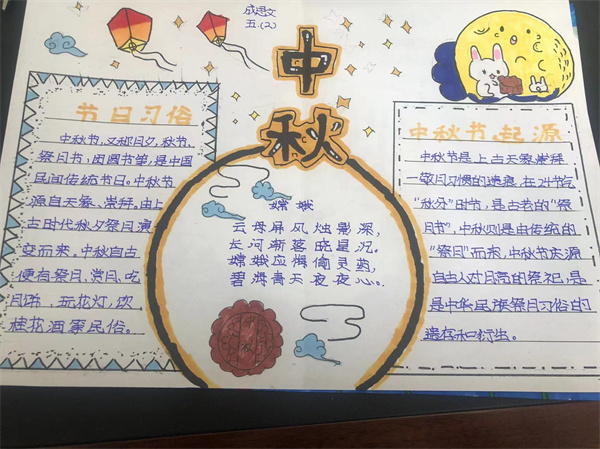 成思文
五.(2)
中
秋
节日习俗
中秋节，又称月夕，秋节、
祭月节，团圆节等，是中国
民间传统节日。中秋节
源自天象、崇拜。由上
古时代秋夕祭月演
变而来。中秋自古
便有祭月、赏月、吃
月饼、玩花灯，饮
桂花酒等民俗。
嫦娥
云母屏风烛影深，
长河渐落晓星沉。
嫦娥应悔偷灵药，
碧海青天夜夜心。
中秋节起源
中秋节是上古天象崇拜
一敬月习惯的遗痕，在24节气
“秋分”时节，是古老的“祭
月节”，中秋则是由传统的
“祭月”而来，中秋节来源
自古人对月亮的祭祀，是
是中华民族祭月习俗的
遗存和衍生。